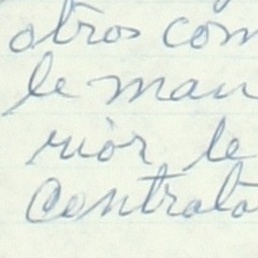 otros com
le man
riòr le
Contrato